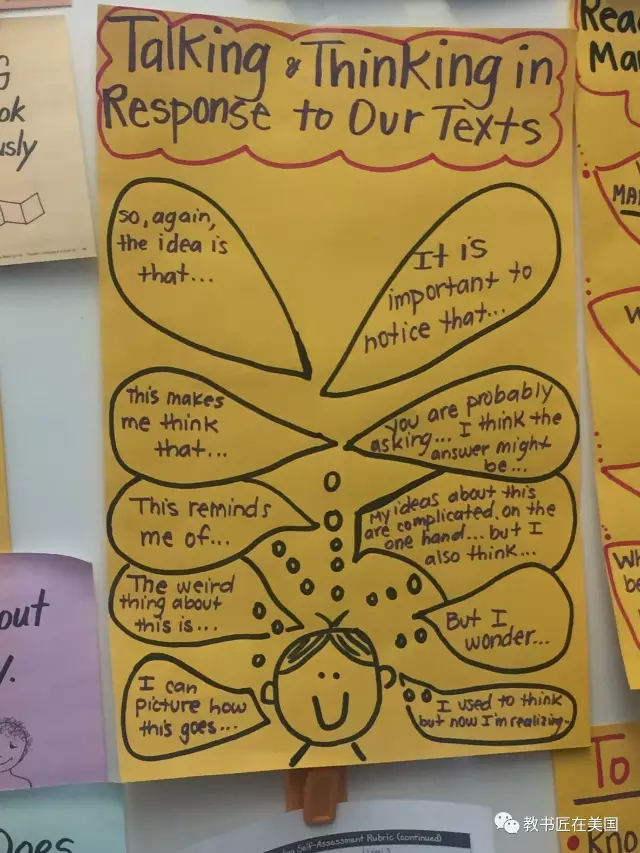 Talking & Thinking in
Response to Our Texts
So, again,
the idea is
that...
It is
important to
notice that...
This makes
me think
that...
you are probably
asking... I think the
answer might
be...
This reminds
me of...
My ideas about this
are complicated. on the
one hand... but I
also think...
The weird
thing about
this is...
But I
wonder...
I can
picture how
this goes...
I used to think
but now I'm realizing..
ok
usly
out
y.
Does
Rea
Ma
MA
W
Wh
be
To
Kno
Self-Assessment Rubric (continued)
教书匠在美国